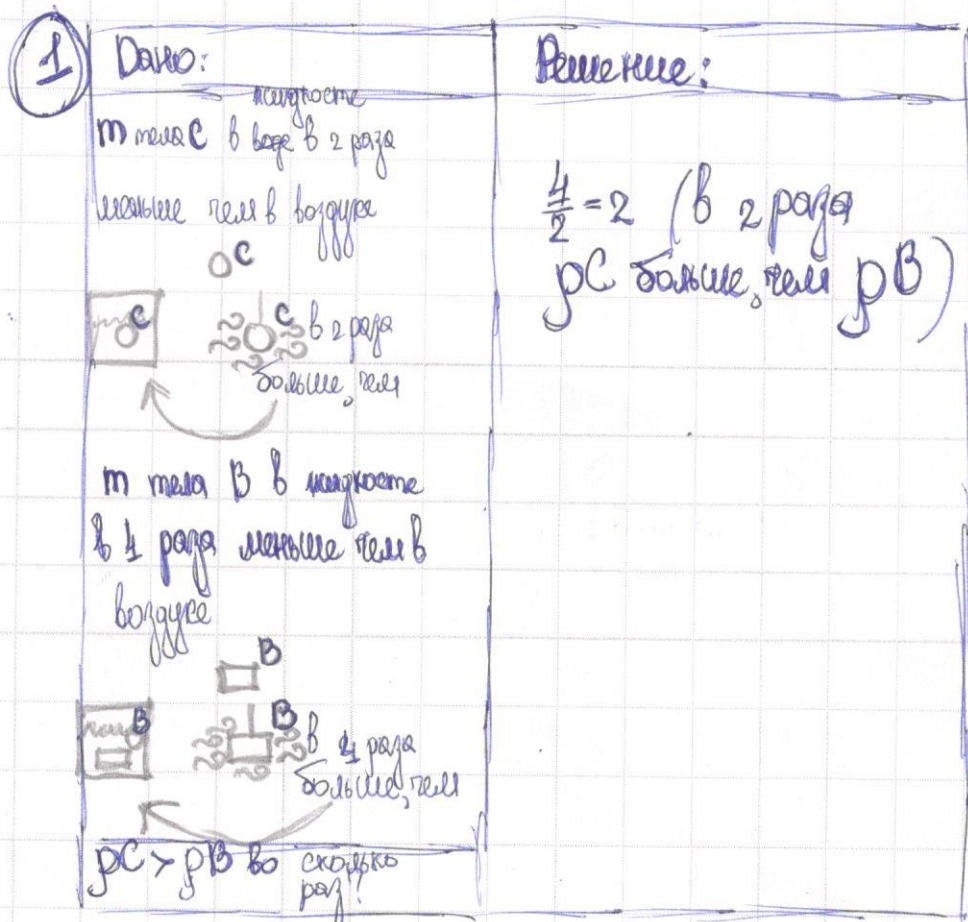 1
Дано:
жидкосте
m тела C в воде в 2 раза
меньше чем в воздухе
C
C
C в 2 раза
больше, чем
m тела B в жидкосте
в 4 раза меньше чем в
воздухе
B
B
B в 4 раза
больше, чем
ρC > ρB во сколько
раз?
Решение:
4/2 = 2 (в 2 раза
ρC больше, чем ρB)